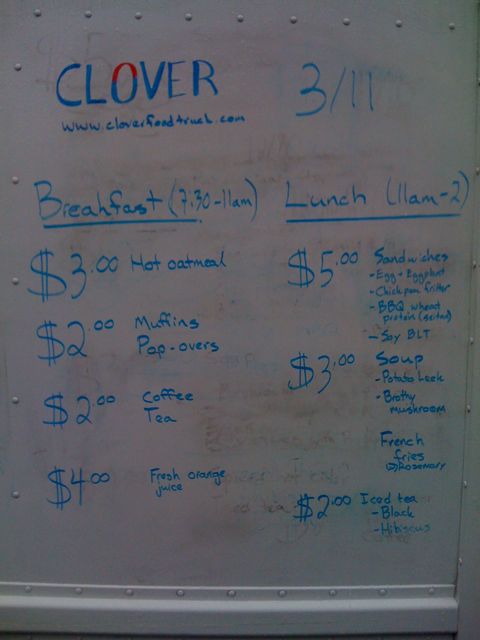 CLOVER 3/11
www.cloverfoodtruck.com
Breakfast (7:30-11am)
$3.00 Hot oatmeal
$2.00 Muffins
Pop-overs
$2.00 Coffee
Tea
$4.00 Fresh orange
juice
Lunch (11am-2)
$5.00 Sandwiches
- Egg - Eggplant
- Chickpea fritter
- BBQ wheat
protein (seitan)
- Soy BLT
$3.00 Soup
- Potato leek
- Brothy
mushroom
French
fries
w/Rosemary
$2.00 Iced tea
- Black
- Hibiscus